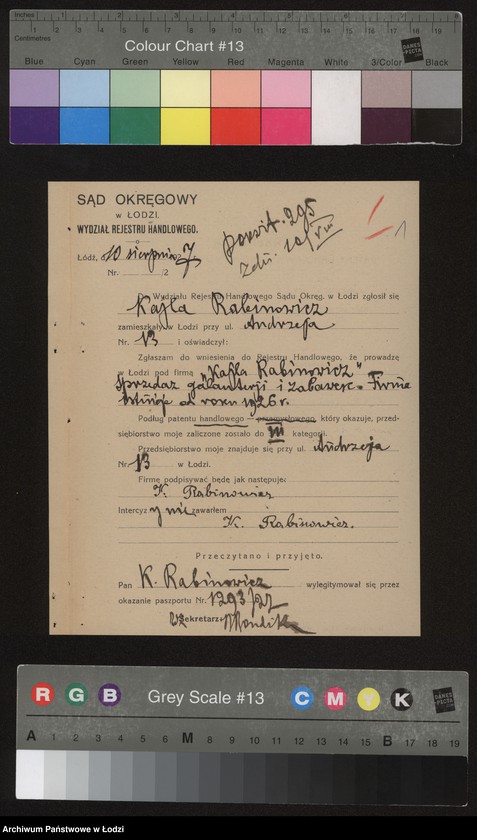 Inches 1 2 3 4 5 6 7 8
Centimetres 1 2 3 4 5 6 7 8 9 10 11 12 13 14 15 16 17 18 19
Colour Chart #13
DANES PICTA
Blue Cyan Green Yellow Red Magenta White 3/Color Black
SĄD OKRĘGOWY
W ŁODZI.
WYDZIAŁ REJESTRU HANDLOWEGO.
Łódź, d. 10 sierpnia 7
Nr. /2
295
1
Do Wydziału Rejestru Handlowego Sądu Okręg. w Łodzi zgłosił się
Kajla Rabinowicz
zamieszkały w Łodzi przy ul. Andrzeja
Nr. 13 i oświadczył:
Zgłaszam do wniesienia do Rejestru Handlowego, że prowadzę
w Łodzi pod firmą „Kajla Rabinowicz"
sprzedaż galanterji i zabawek. Firma
istnieje od roku 1926 r.
Podług patentu handlowego — przemysłowego, który okazuje, przed-
siębiorstwo moje zaliczone zostało do III kategorji.
Przedsiębiorstwo moje znajduje się przy ul. Andrzeja
Nr. 13 w Łodzi.
Firmę podpisywać będę jak następuje:
K. Rabinowicz
Intercyzy nie zawarłem
K. Rabinowicz.
Przeczytano i przyjęto.
Pan K. Rabinowicz wylegitymował się przez
okazanie paszportu Nr. 1293/27
Sekretarz:
R G B Grey Scale #13 C M Y K
DANES PICTA
A 1 2 3 4 5 6 M 8 9 10 11 12 13 14 15 B 17 18 19
Archiwum Państwowe w Łodzi